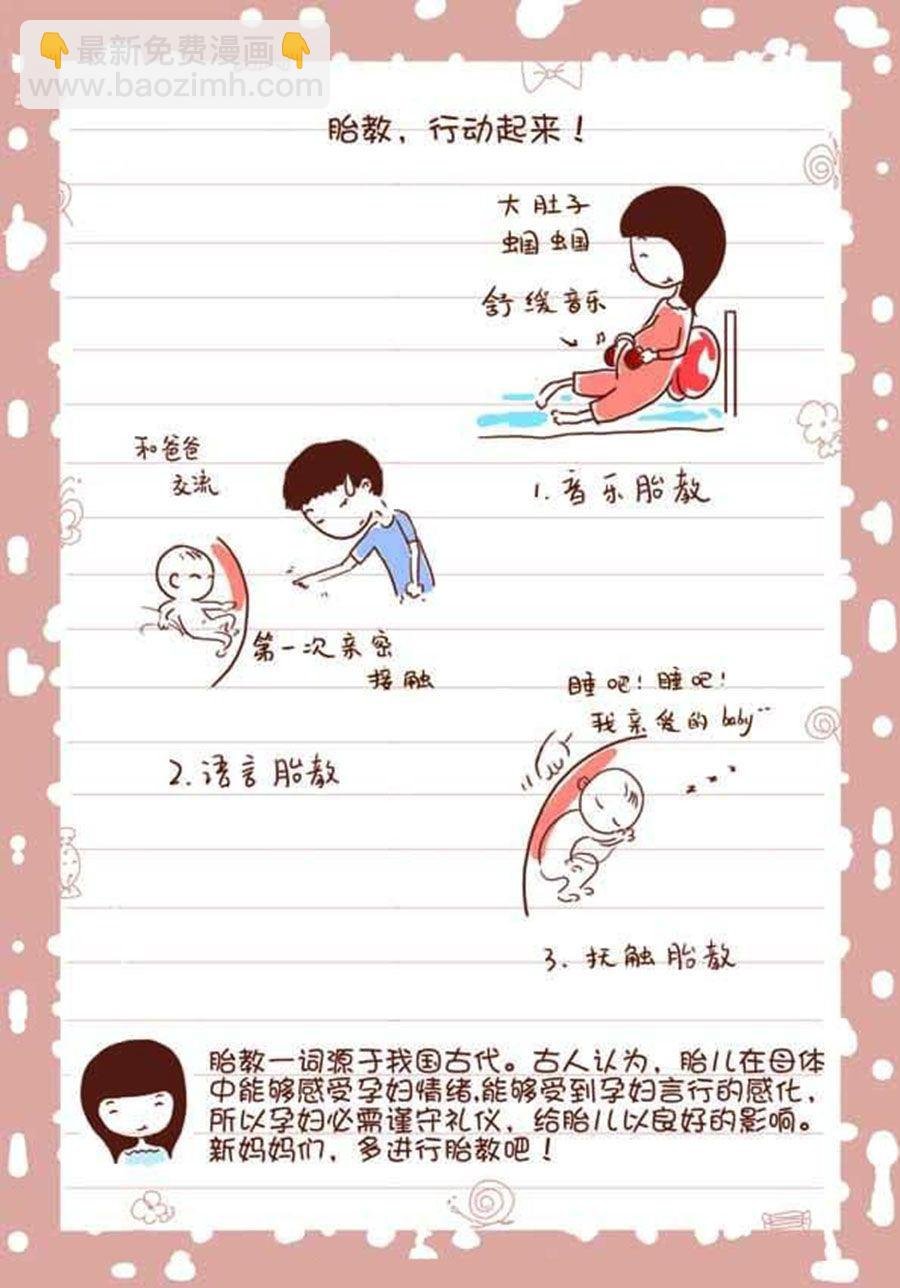 👇最新免费漫画👇
www.baozimh.com
胎教，行动起来！
大肚子
蝈蝈
舒缓音乐
1.音乐胎教
和爸爸
交流
第一次亲密
接触
2.语言胎教
睡吧！睡吧！
我亲爱的baby
z z z
3.抚触胎教
胎教一词源于我国古代。古人认为，胎儿在母体
中能够感受孕妇情绪,能够受到孕妇言行的感化，
所以孕妇必需谨守礼仪，给胎儿以良好的影响。
新妈妈们，多进行胎教吧！